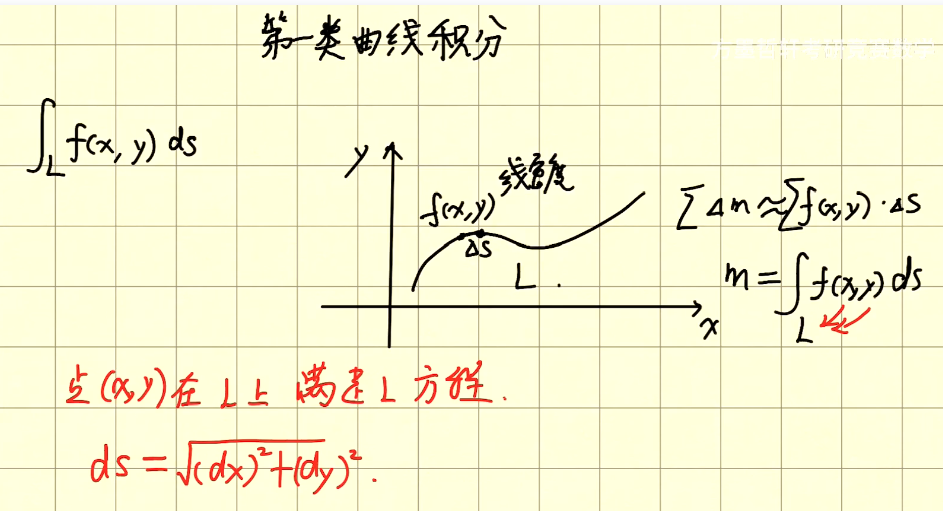 第一类曲线积分
∫_L f(x, y) ds
y
线密度
f(x,y)
ΔS
L .
x
∑Δm≈∑f(x,y)·ΔS
m=∫_L f(x,y) ds
点(x,y)在L上 满足L方程.
ds=√(dx)²+(dy)².